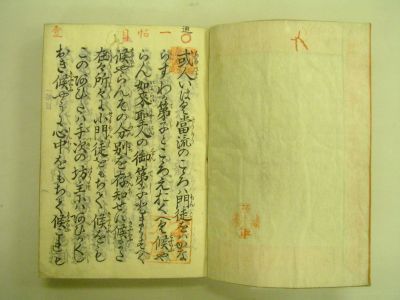 一帖目
或人いはく當流のこゝろは門徒をはかな
らすわか弟子とこゝろえをくへく候や
らん如來聖人の御弟子とまうすへく
候やらんその分別を存知せす候また
在々所々に小門徒をもちて候をも
このあひたは手次の坊主にはあひかくし
おき候やうに心中をもちて候これも